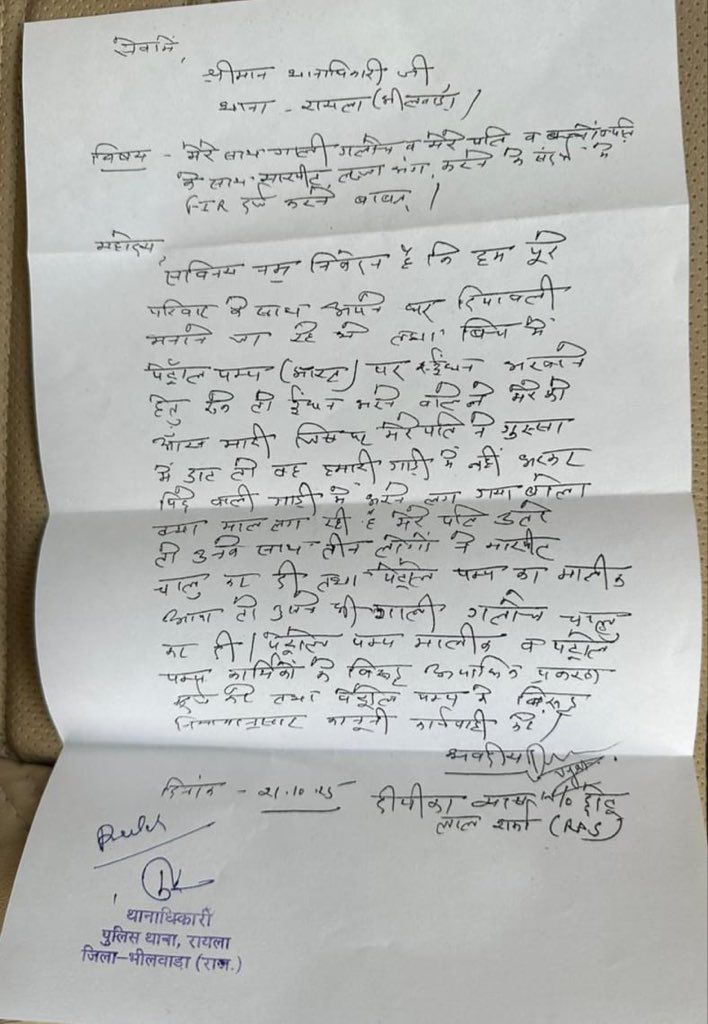 सेवामें,
श्रीमान थानाधिकारी जी
थाना - रायला (भीलवाड़ा)
विषय - मेरे साथ गाली गलोच व मेरे पति व बच्चों
के साथ मारपीट, लज्जा भंग करने के संदर्भ में
FIR दर्ज करने बाबत् /
महोदय,
सविनय नम्र निवेदन है कि हम पूरे
परिवार के साथ अपने घर दिपावली
मनाने जा रहे थे तथा बिच में
पेट्रोल पम्प (भारत) पर ईंधन भरवाने
हेतु रूके तो ईंधन भरने वाले ने मेरे को
आँख मारी जिस पर मेरे पति ने गुस्सा
में डाट तो वह हमारी गाड़ी में नहीं भरकर
पिछे वाली गाड़ी में भरने लग गया बोला
क्या माल लग रही है मेरे पति उतरे
तो उनके साथ तीन लोगों ने मारपीट
चालु कर दी तथा पेट्रोल पम्प का मालीक
आया तो उसने भी गाली गलोच चालु
कर दी / पेट्रोल पम्प मालीक व पेट्रोल
पम्प कार्मिकों के विरूद्ध अपराधिक प्रकरण
दर्ज करे तथा पेट्रोल पम्प के विरूद्ध
नियमानुसार कानूनी कार्यवाही करे /
भवदीया
दिनांक - 21.10.25
दीपीका व्यास W/o छोटू
लाल शर्मा (RAS)
थानाधिकारी
पुलिस थाना, रायला
जिला-भीलवाडा (राज.)